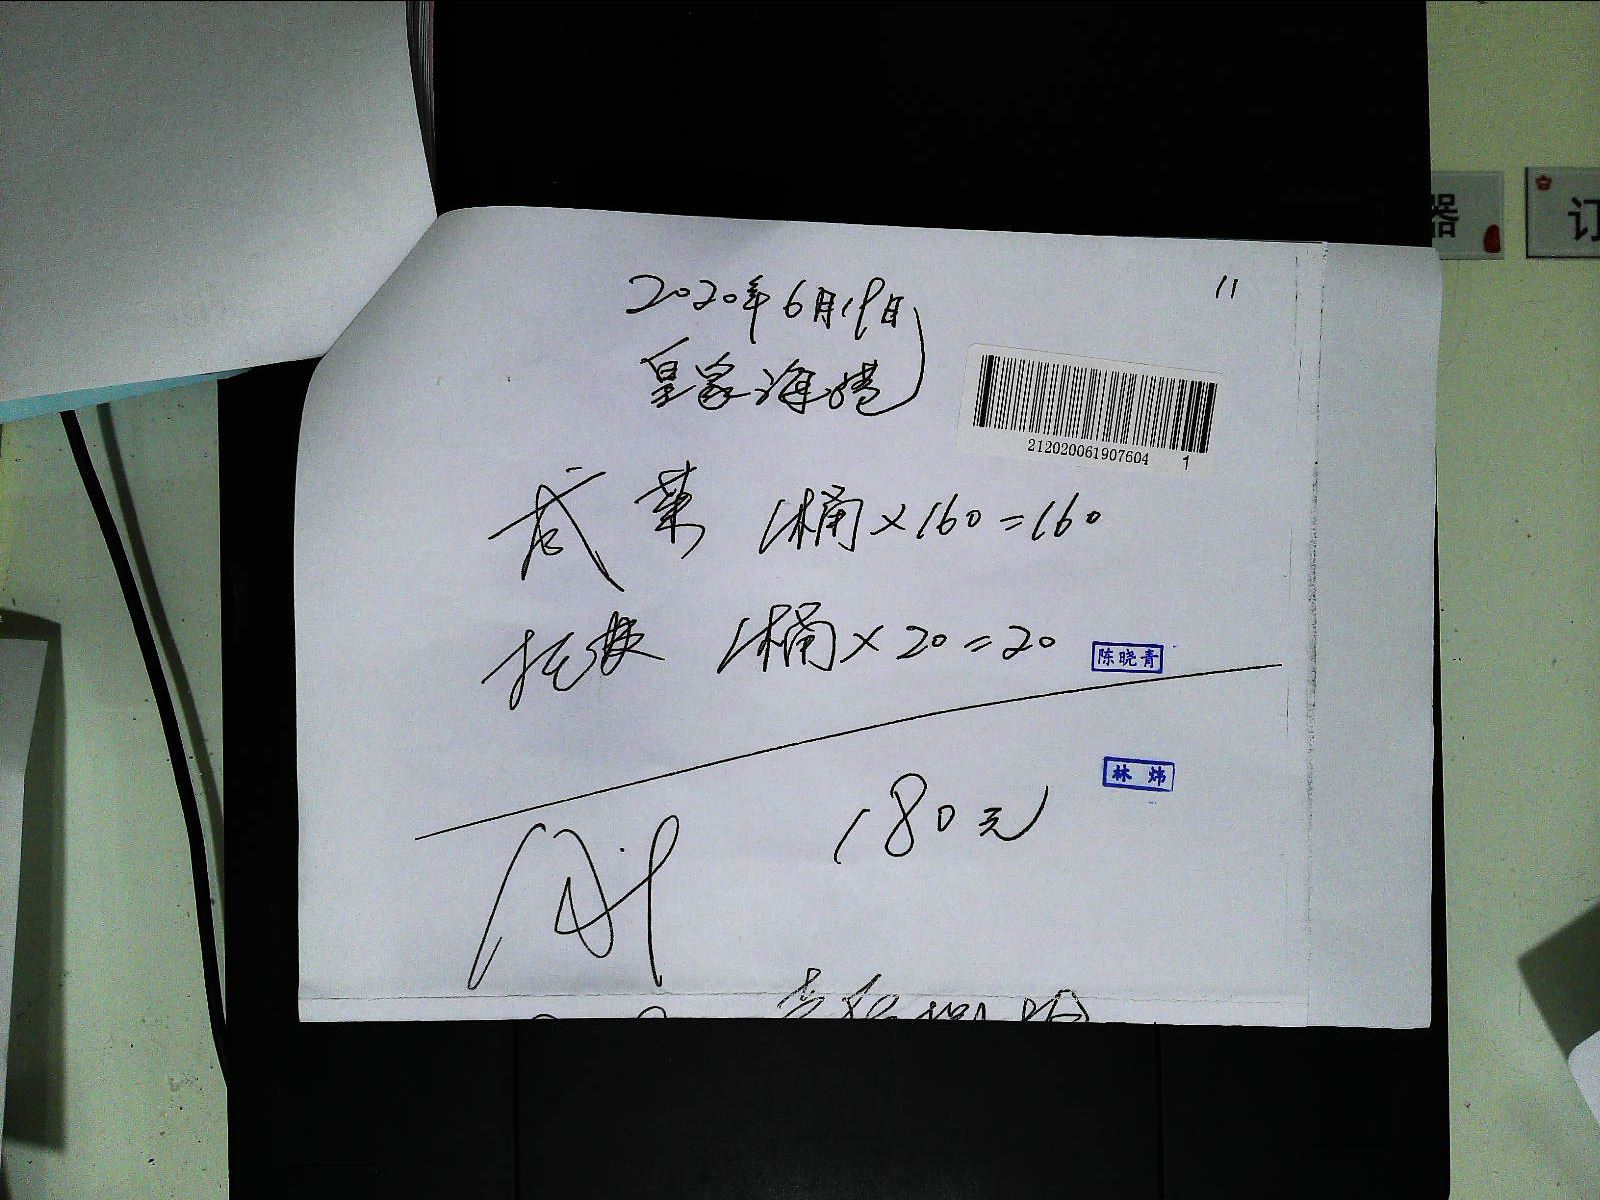 器
订
11
2020年6月19日
皇家海港
212020061907604 1
咸菜 1桶×160=160
1桶×20=20
陈晓青
林炜
180元